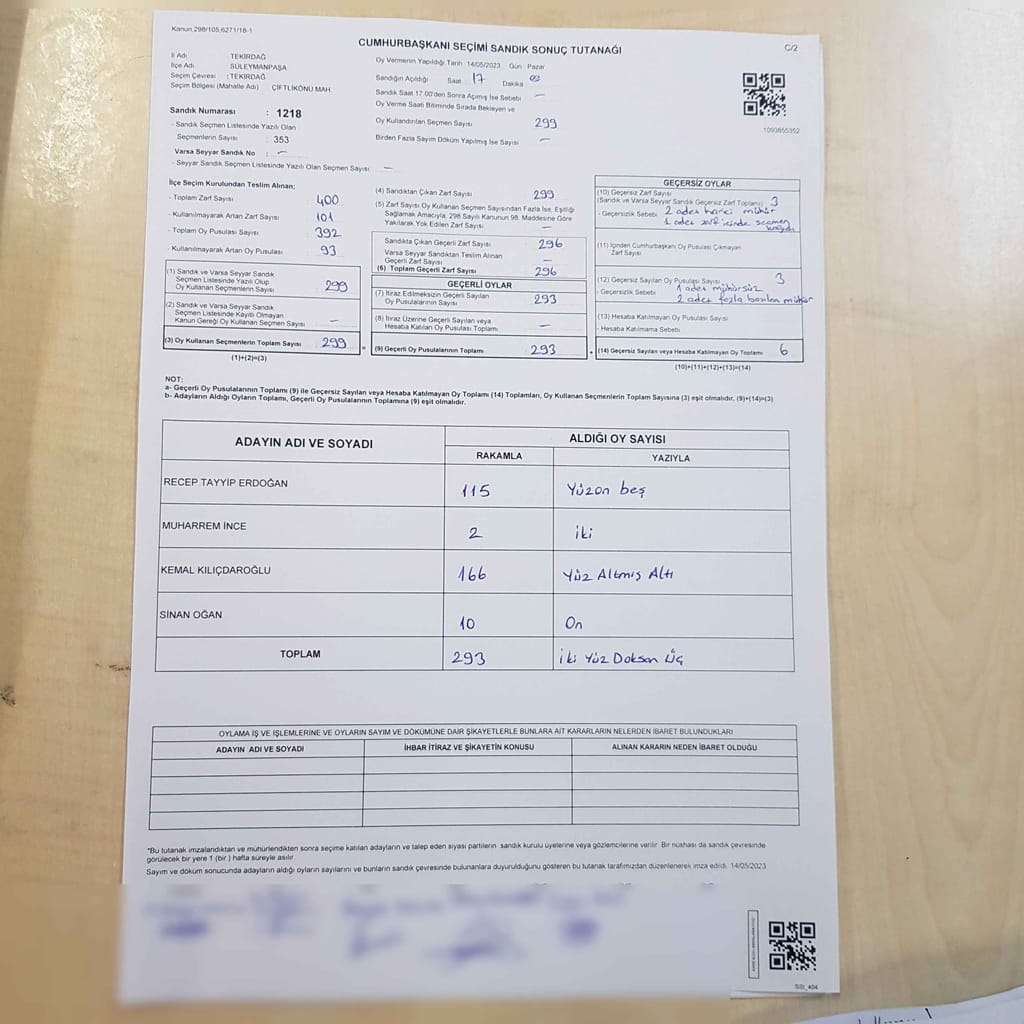 Kanun:298/105,6271/18-1
CUMHURBAŞKANI SEÇİMİ SANDIK SONUÇ TUTANAĞI
C/2
İl Adı : TEKİRDAĞ
İlçe Adı : SÜLEYMANPAŞA
Seçim Çevresi : TEKİRDAĞ
Seçim Bölgesi (Mahalle Adı) : ÇİFTLİKÖNÜ MAH.
Oy Vermenin Yapıldığı Tarih :14/05/2023 Gün : Pazar
Sandığın Açıldığı Saat 17 Dakika 03
Sandık Saat 17.00'den Sonra Açılmış İse Sebebi —
Oy Verme Saati Bitiminde Sırada Bekleyen ve
Oy Kullandırılan Seçmen Sayısı 299
Birden Fazla Sayım Döküm Yapılmış İse Sayısı —
1093855352
Sandık Numarası : 1218
- Sandık Seçmen Listesinde Yazılı Olan
Seçmenlerin Sayısı : 353
Varsa Seyyar Sandık No : —
- Seyyar Sandık Seçmen Listesinde Yazılı Olan Seçmen Sayısı : —
İlçe Seçim Kurulundan Teslim Alınan;
- Toplam Zarf Sayısı 400
- Kullanılmayarak Artan Zarf Sayısı 101
- Toplam Oy Pusulası Sayısı 392
- Kullanılmayarak Artan Oy Pusulası 93
(1) Sandık ve Varsa Seyyar Sandık
Seçmen Listesinde Yazılı Olup
Oy Kullanan Seçmenlerin Sayısı 299
(2) Sandık ve Varsa Seyyar Sandık
Seçmen Listesinde Kayıtlı Olmayan
Kanun Gereği Oy Kullanan Seçmen Sayısı —
(3) Oy Kullanan Seçmenlerin Toplam Sayısı 299
(1)+(2)=(3)
(4) Sandıktan Çıkan Zarf Sayısı 299
(5) Zarf Sayısı Oy Kullanan Seçmen Sayısından Fazla İse, Eşitliği
Sağlamak Amacıyla; 298 Sayılı Kanunun 98. Maddesine Göre
Yakılarak Yok Edilen Zarf Sayısı —
Sandıkta Çıkan Geçerli Zarf Sayısı 296
Varsa Seyyar Sandıktan Teslim Alınan
Geçerli Zarf Sayısı —
(6) Toplam Geçerli Zarf Sayısı 296
GEÇERLİ OYLAR
(7) İtiraz Edilmeksizin Geçerli Sayılan
Oy Pusulalarının Sayısı 293
(8) İtiraz Üzerine Geçerli Sayılan veya
Hesaba Katılan Oy Pusulası Toplamı —
= (9) Geçerli Oy Pusulalarının Toplamı 293
GEÇERSİZ OYLAR
(10) Geçersiz Zarf Sayısı
(Sandık ve Varsa Seyyar Sandık Geçersiz Zarf Toplamı) 3
- Geçersizlik Sebebi 2 adet harici mühür
1 adet zarf içinde seçmen
(11) İçinden Cumhurbaşkanı Oy Pusulası Çıkmayan
Zarf Sayısı
(12) Geçersiz Sayılan Oy Pusulası Sayısı 3
- Geçersizlik Sebebi 1 adet mühürsüz
2 adet fazla basılan mühür
(13) Hesaba Katılmayan Oy Pusulası Sayısı
- Hesaba Katılmama Sebebi
+ (14) Geçersiz Sayılan veya Hesaba Katılmayan Oy Toplamı 6
(10)+(11)+(12)+(13)=(14)
NOT:
a- Geçerli Oy Pusulalarının Toplamı (9) ile Geçersiz Sayılan veya Hesaba Katılmayan Oy Toplamı (14) Toplamları, Oy Kullanan Seçmenlerin Toplam Sayısına (3) eşit olmalıdır. (9)+(14)=(3)
b- Adayların Aldığı Oyların Toplamı, Geçerli Oy Pusulalarının Toplamına (9) eşit olmalıdır.
ADAYIN ADI VE SOYADI ALDIĞI OY SAYISI
RAKAMLA YAZIYLA
RECEP TAYYİP ERDOĞAN 115 Yüzon beş
MUHARREM İNCE 2 iki
KEMAL KILIÇDAROĞLU 166 Yüz Altmış Altı
SİNAN OĞAN 10 On
TOPLAM 293 iki Yüz Doksan Üç
OYLAMA İŞ VE İŞLEMLERİNE VE OYLARIN SAYIM VE DÖKÜMÜNE DAİR ŞİKAYETLERLE BUNLARA AİT KARARLARIN NELERDEN İBARET BULUNDUKLARI
ADAYIN ADI VE SOYADI İHBAR İTİRAZ VE ŞİKAYETİN KONUSU ALINAN KARARIN NEDEN İBARET OLDUĞU
*Bu tutanak imzalandıktan ve mühürlendikten sonra seçime katılan adayların ve talep eden siyasi partilerin sandık kurulu üyelerine veya gözlemcilerine verilir. Bir nüshası da sandık çevresinde
görülecek bir yere 1 (bir) hafta süreyle asılır.
Sayım ve döküm sonucunda adayların aldığı oyların sayılarını ve bunların sandık çevresinde bulunanlara duyurulduğunu gösteren bu tutanak tarafımızdan düzenlenerek imza edildi. 14/05/2023